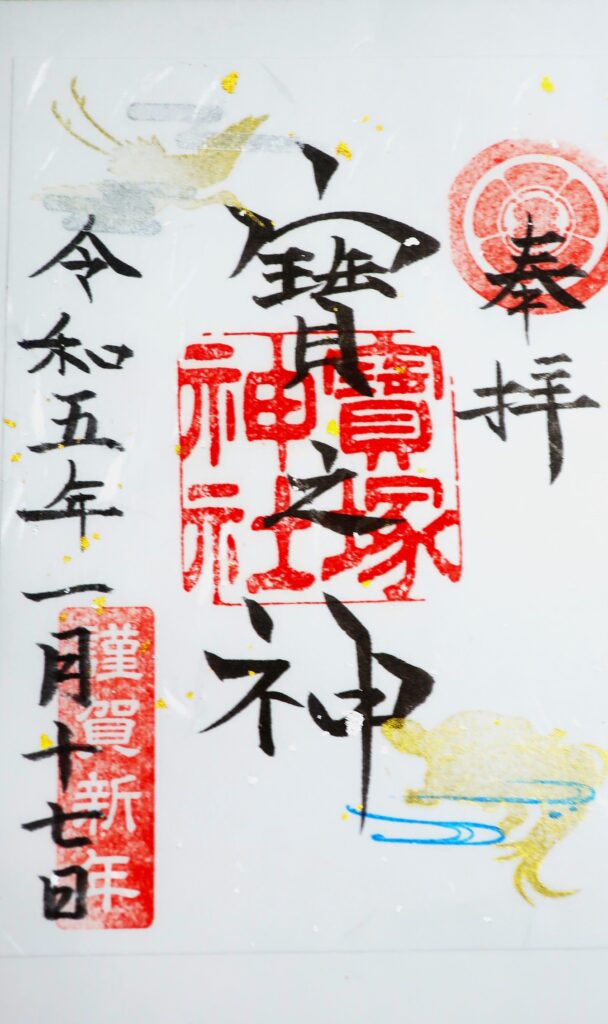 奉拝
寶之神
寶塚
神社
令和五年一月十七日
謹賀新年